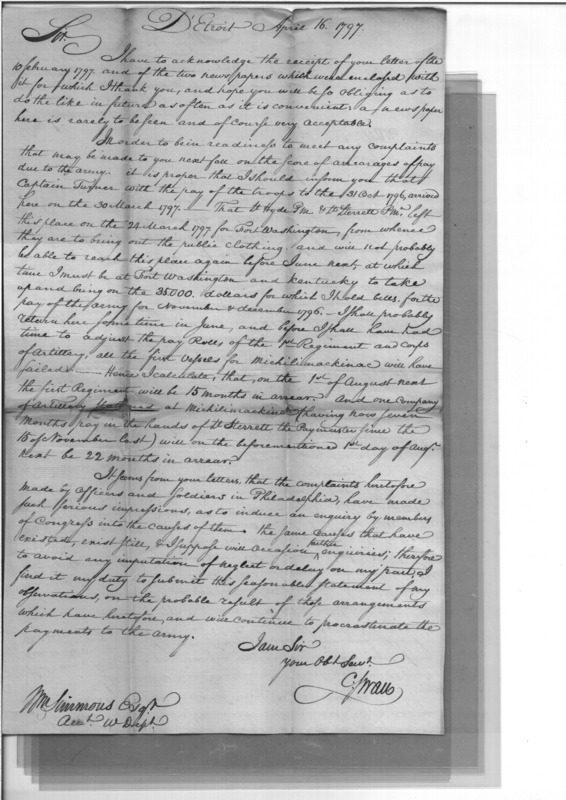 D'Etroit April 16. 1797.
Sir.
I have to acknowledge the receipt of your letter of the
10 february 1797 and of the two newspapers which were enclosed with
it for which I thank you, and hope you will be so obliging as to
do the like in future as often as it is convenient a newspaper
here is rarely to be seen and of course very acceptable.
In order to be in readiness to meet any complaints
that may be made to you next fall on the score of arrearages of pay
due to the army. it is proper that I should inform you that
Captain Turner with the pay of the troops to the 31 Oct 1796, arrived
here on the 30 March 1797. — That Lt Hyde PM. & Lt Sterrett PM. left
this place on the 24 March 1797 for Fort Washington, from whence
they are to bring out the public clothing, and will not probably
be able to reach this place again before June next, at which
time I must be at Fort Washington and kentucky to take
up and bring on the 35000. dollars for which I hold bills. for the
pay of the army for November & december 1796. — I shall probably
return here some time in June, and before I shall have had
time to adjust the pay Rolls, of the 1st Regiment and corps
of Artillery, all the first vessels for Michilimackinac will have
sailed — Hence I calculate, that, on the 1st of August next
the first Regiment will be 15 months in arrear. And one Company
of Artillery stationed at Michilimackinac (having now seven
months pay in the hands of Lt Sterrett the Paymaster since the
15 of November last) will on the beforementioned 1st day of Augt.
next be 22 months in arrear.
It seems from your letters, that the complaints heretofore
made by officers and soldiers in Philadelphia, have made
such serious impressions, as to induce an enquiry by members
of Congress into the causes of them — the same causes that have
existed, exist still, & I suppose will occasion further enquiries; therefore
to avoid any imputation of neglect or delay on my part, I
find it my duty to submit this seasonable statement of my
observations, on the probable result of those arrangements
which have heretofore, and will continue to procrastinate the
payments to the army.
I am Sir
your Obt Servt.
C. Swan
Wm Simmons Esqr.
Acct. W Dept.